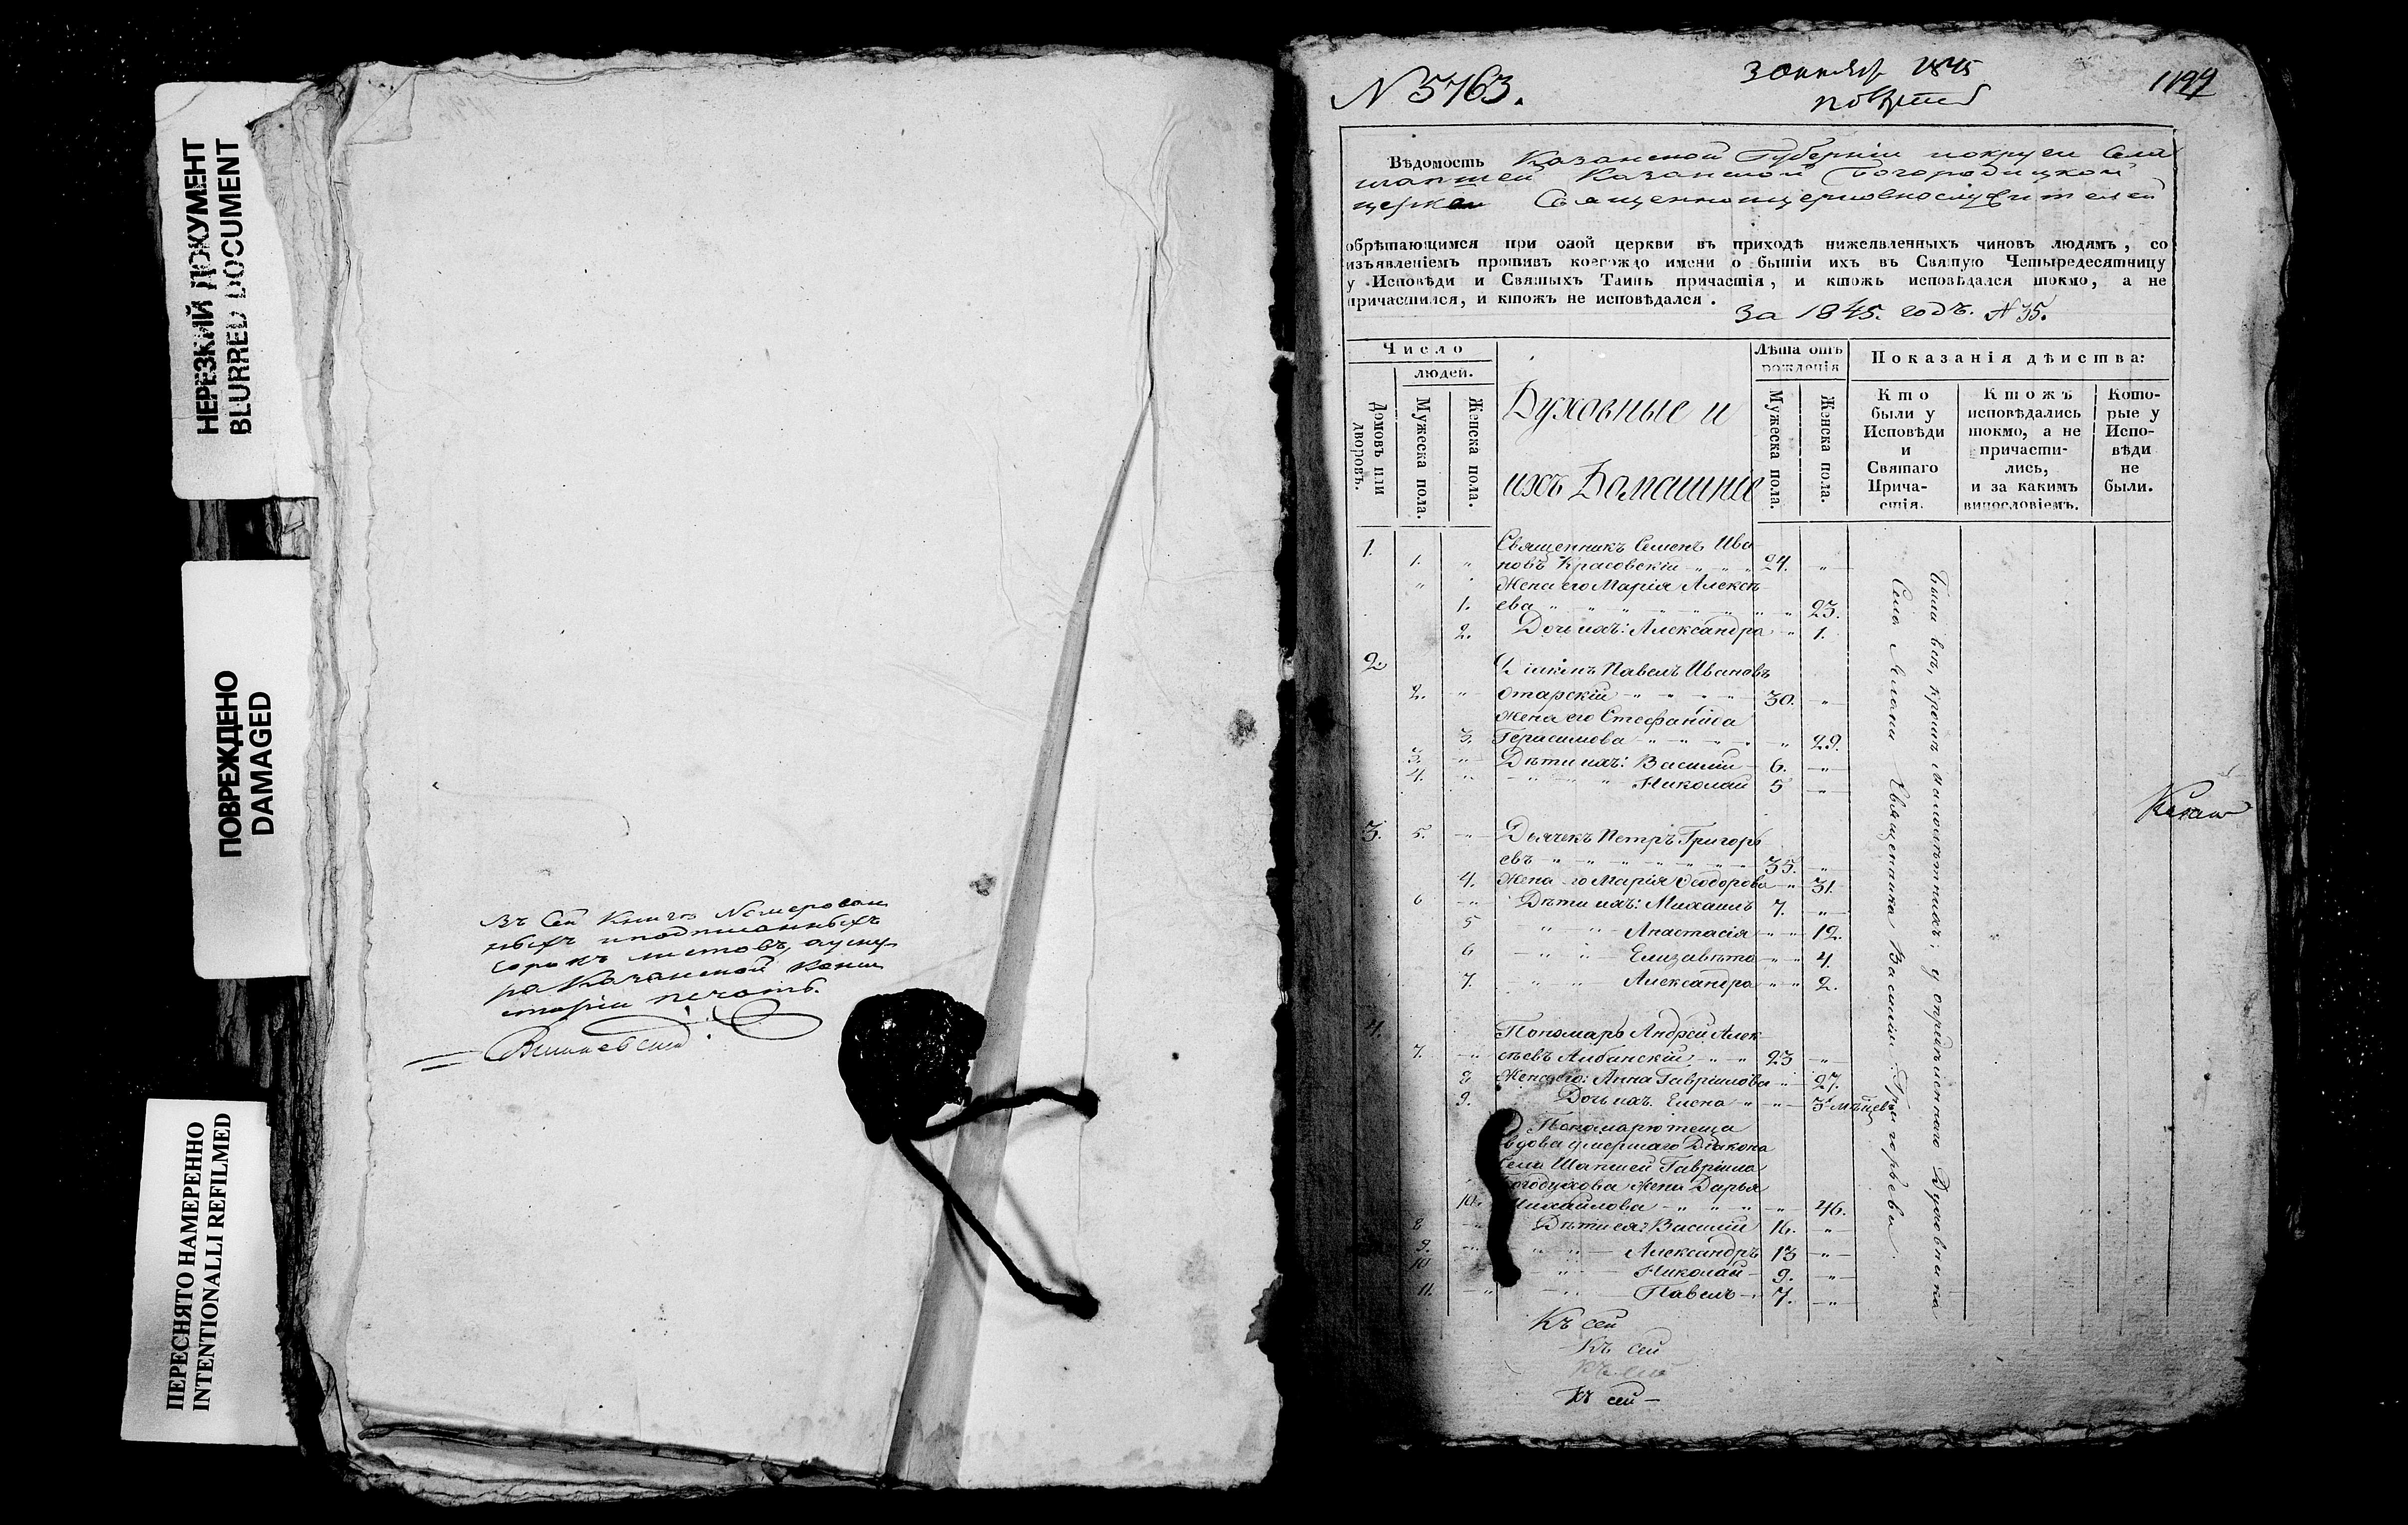 НЕРЕЗКИЙ ДОКУМЕНТ
BLURRED DOCUMENT
ПОВРЕЖДЕНО
DAMAGED
ПЕРЕСНЯТО НАМЕРЕННО
INTENTIONALLI REFILMED
Въ Сей Книгѣ Номерован
ныхъ
сорокъ листовъ,
Казанской Конси
сторіи печать.
N 3763.
3 Октябр 1845
1197
Вѣдомость Казанской Губерніи Села
Шапшей Казанской Богородицкой
церкви Священноцерковнослужителей
обрѣтающимся при оной церкви въ приходѣ нижеявленныхъ чиновъ людямъ, со
изъявленіемъ противъ коегождо имени о бытіи ихъ въ Святую Четыредесятницу
у Исповѣди и Святыхъ Таинъ причастія, и ктожъ исповѣдался токмо, а не
причастился, и ктожъ не исповѣдался.
За 1845. годъ. N 35.
Число
людей.
Домовъ или дворовъ.
Мужеска пола.
Женска пола.
Духовные и
ихъ Домашніе
Лѣта отъ
рожденія
Мужеска пола.
Женска пола.
Показанія дѣйства:
Кто
были у
Исповѣди
и
Святаго
Прича-
стія.
Ктожъ
исповѣдались
токмо, а не
причасти-
лись,
и за какимъ
винословіемъ.
Кото-
рые у
Испо-
вѣди
не
были.
1. Священникъ Семенъ Ива
1. " новъ Красовскій " " " 24. "
" Жена его Марія Алексѣ
1. ева " " " " " " " 23.
2. Дочь ихъ: Александра " 1.
2. Діаконъ Павелъ Ивановъ
2. " Отарскій " " " " 30. "
Жена его Стефанида
3. Герасимова " " " " " 29.
3. " Дѣти ихъ: Василій 6. "
4. " " " " Николай 5 "
3. 5. " Дьячекъ Петръ Григорь
евъ " " " " " " 35. "
4. Жена его Марія Ѳеодорова " 31.
6 " Дѣти ихъ: Михаилъ 7. "
5 " " Анастасія " " 12.
6 " " Елизавѣта " " 4.
7. " " Александра " " 2.
4. Пономарь Андрей Алек
7. " сѣевъ Албанскій " " 23 "
8 Жена его: Анна Гавріилова " 27.
9. Дочь ихъ. Елена " " 3 мѣсцев
Пономарю теща
вдова умершаго Діакона
села Шапшей Гавріила
Богодухова жена Дарья
10. Михайлова " " " " 46.
8 " Дѣти ея: Василій 16. "
9. " " " Александръ 13 "
10 " " Николай 9. "
11. " " Павелъ 7. "
Были всѣ, кромѣ малолѣтнихъ, у опредѣленнаго Духовника
Села Священника Василія Григорьева
Къ сей
Къ сей
Къ сей
Къ сей